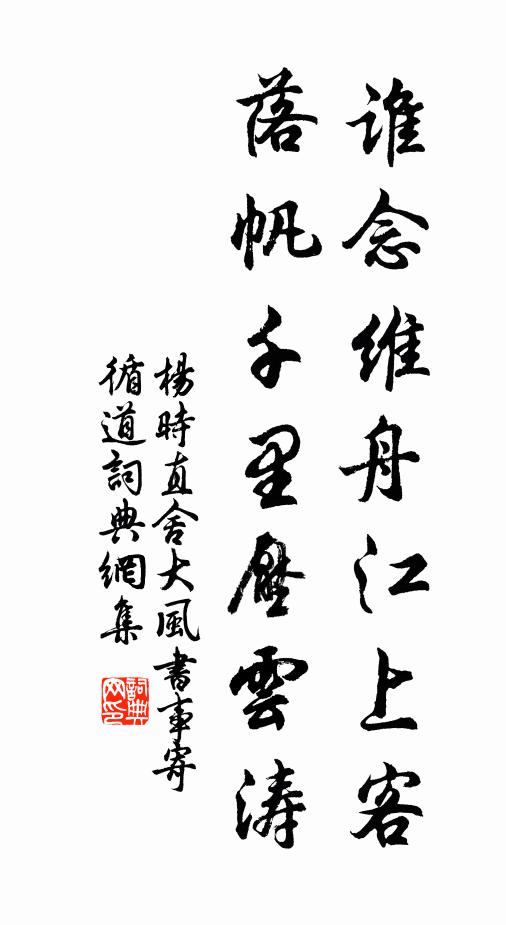 谁念維舟江上客
落帆千里壓雲涛
楊時直舍大風書事寄
循道詞典網集
詞典
网印